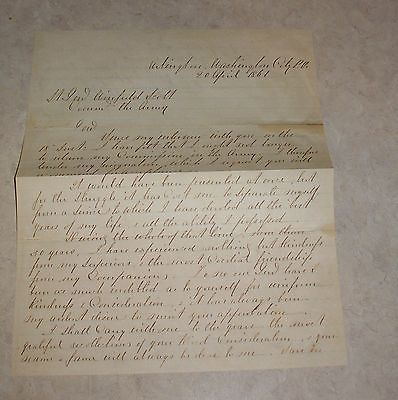 Arlington, Washington City P.O.
20 April 1861
Lt Genl Winfield Scott
Comm the Army
Genl
Since my interview with you on the
18th Inst I have felt that I ought not longer
to retain my Commission in the Army. I therefore
tender my resignation which I request you will
It would have been presented at once, but
for the struggle it has cost me to separate myself
from a service to which I have devoted all the best
years of my life & all the ability I possessed
During the whole of that time, more than
30 years, I have experienced nothing but kindness
from my superiors & the most cordial friendship
from my Companions. To no one Genl have I
been as much indebted as to yourself for uniform
kindness & Consideration, & it has always been
my ardent desire to merit your approbation.
I shall carry with me to the grave the most
grateful recollections of your kind Consideration, & your
name & fame will always be dear to me. Save in